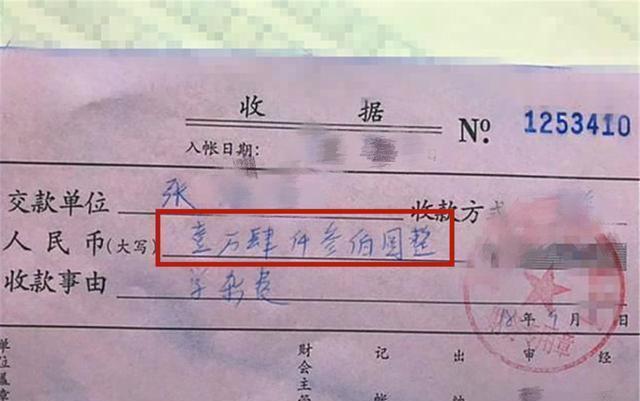 收据 № 1253410
入帐日期：
交款单位 张 收款方式
人民币(大写) 壹万肆仟叁佰圆整
收款事由 学杂费
18年 月 日
财会主 记 出 审 经
单位盖章